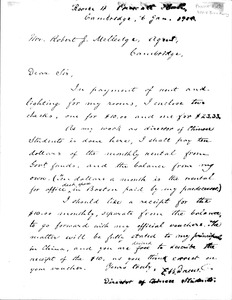 Room 11
Cambridge, 6 Jan.
Hon. Robert J. Melledge, Agent,
Cambridge,
Dear Sir,
In payment of rent and
lighting for my rooms, I enclose two
checks, one for $10.00 and one for $23.33
As my work as director of Chinese
Students is done here, I shall pay ten
dollars of the monthly rental from
Govt. funds, and the balance from my
own. (One dollar a month is the rental
for office desk in Boston paid by my predecessor)
I should like a receipt for the
$10.00 monthly, separate from the balance,
to go forward with my official vouchers. The
matter will be fully stated to my principal
in China, and you are free to describe the
receipt of the $10. as you think correct on
your voucher.
Yours truly,
Director of Chinese Students.